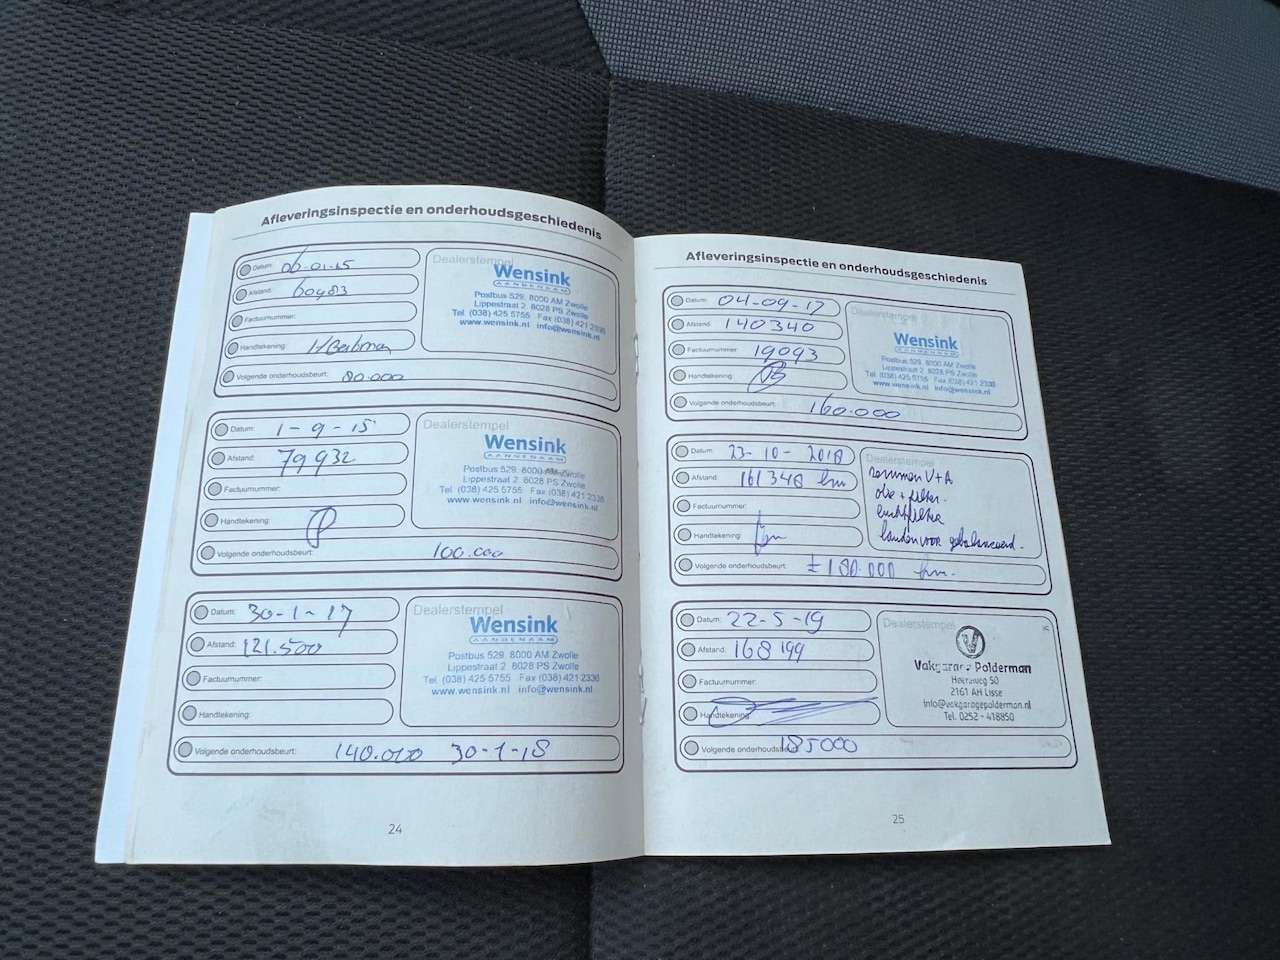 Afleveringsinspectie en onderhoudsgeschiedenis
Datum: 06-01-15
Afstand: 60483
Factuurnummer:
Handtekening:
Volgende onderhoudsbeurt: 80.000
Dealerstempel
Wensink
AANGENAAM
Postbus 529, 8000 AM Zwolle
Lippestraat 2, 8028 PS Zwolle
Tel. (038) 425 5755 Fax (038) 421 2336
www.wensink.nl info@wensink.nl
Datum: 1-9-15
Afstand: 79932
Factuurnummer:
Handtekening:
Volgende onderhoudsbeurt: 100.000
Dealerstempel
Wensink
AANGENAAM
Postbus 529, 8000 AM Zwolle
Lippestraat 2, 8028 PS Zwolle
Tel. (038) 425 5755 Fax (038) 421 2336
www.wensink.nl info@wensink.nl
Datum: 30-1-17
Afstand: 121.500
Factuurnummer:
Handtekening:
Volgende onderhoudsbeurt: 140.000 30-1-18
Dealerstempel
Wensink
AANGENAAM
Postbus 529, 8000 AM Zwolle
Lippestraat 2, 8028 PS Zwolle
Tel. (038) 425 5755 Fax (038) 421 2336
www.wensink.nl info@wensink.nl
24
Afleveringsinspectie en onderhoudsgeschiedenis
Datum: 04-09-17
Afstand: 140340
Factuurnummer: 19093
Handtekening:
Volgende onderhoudsbeurt: 160.000
Dealerstempel
Wensink
AANGENAAM
Postbus 529, 8000 AM Zwolle
Lippestraat 2, 8028 PS Zwolle
Tel. (038) 425 5755 Fax (038) 421 2336
www.wensink.nl info@wensink.nl
Datum: 23-10-2018
Afstand: 161348 km
Factuurnummer:
Handtekening:
Volgende onderhoudsbeurt: ± 180.000 km.
Dealerstempel
remmen V+A
olie + filter.
luchtfilter
banden voor gebalanceerd.
Datum: 22-5-19
Afstand: 168199
Factuurnummer:
Handtekening:
Volgende onderhoudsbeurt: 185000
Dealerstempel
Vakgarage Polderman
Heereweg 50
2161 AH Lisse
info@vakgaragepolderman.nl
Tel. 0252 - 418850
25